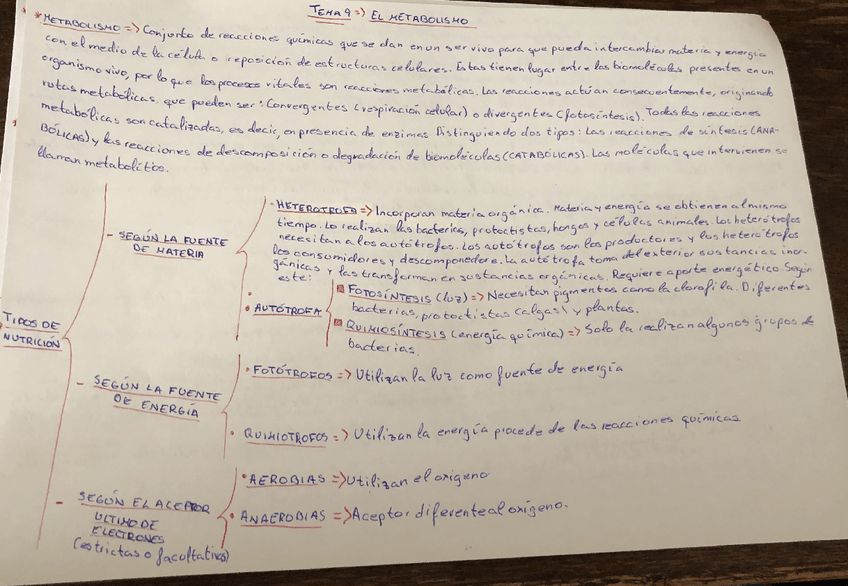 TEMA 9 => EL METABOLISMO
* METABOLISMO => Conjunto de reacciones químicas que se dan en un ser vivo para que pueda intercambiar materia y energía
con el medio de la célula o reposición de estructuras celulares. Estas tienen lugar entre las biomoléculas presentes en un
organismo vivo, por lo que los procesos vitales son reacciones metabólicas. Las reacciones actúan consecuentemente, originando
rutas metabólicas, que pueden ser: Convergentes (respiración celular) o divergentes (fotosíntesis). Todas las reacciones
metabólicas son catalizadas, es decir, en presencia de enzimas. Distinguiendo dos tipos: Las reacciones de síntesis (ANA-
BÓLICAS) y las reacciones de descomposición o degradación de biomoléculas (CATABÓLICAS). Las moléculas que intervienen se
llaman metabolitos.
TIPOS DE
NUTRICIÓN
- SEGÚN LA FUENTE
DE MATERIA
· HETEROTROFA => Incorporan materia orgánica. Materia y energía se obtienen al mismo
tiempo. Lo realizan las bacterias, protoctistas, hongos y células animales. Los heterótrofos
necesitan a los autótrofos. Los autótrofos son los productores y los heterótrofos
los consumidores y descomponedore. La autótrofa toma del exterior sustancias inor-
gánicas y las transforman en sustancias orgánicas. Requiere aporte energético. Según
este:
· AUTÓTROFA
FOTOSÍNTESIS (luz) => Necesitan pigmentos como la clorofila. Diferentes
bacterias, protoctistas (algas) y plantas.
QUIMIOSÍNTESIS (energía química) => Solo la realizan algunos grupos de
bacterias.
- SEGÚN LA FUENTE
DE ENERGÍA
· FOTÓTROFOS => Utilizan la luz como fuente de energía
· QUIMIOTROFOS => Utilizan la energía procede de las reacciones químicas
- SEGÚN EL ACEPTOR
ULTIMO DE
ELECTRONES
(estrictas o facultativas)
· AEROBIAS => Utilizan el oxígeno
· ANAEROBIAS => Aceptor diferente al oxígeno.